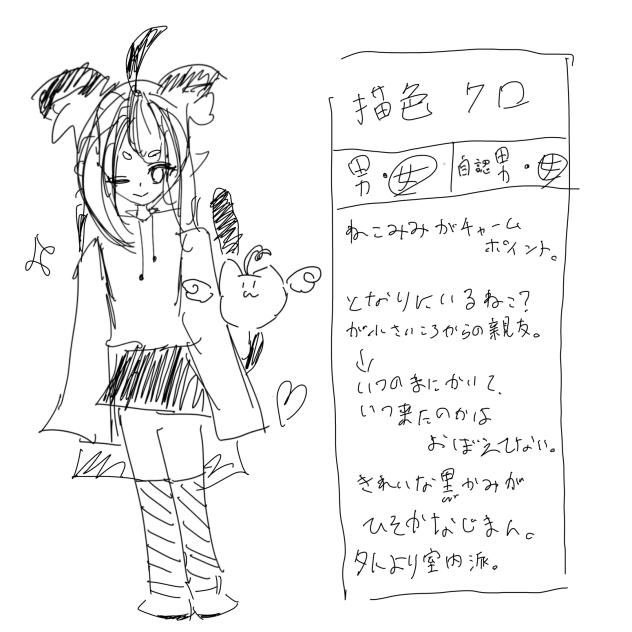 描色 クロ
男・女
自認男・女
ねこみみがチャーム
ポイント。
となりにいるねこ?
が小さいころからの親友。
↓
いつのまにかいて、
いつ来たのかは
おぼえてない。
きれいな黒かみが
ひそかなじまん。
外より室内派。